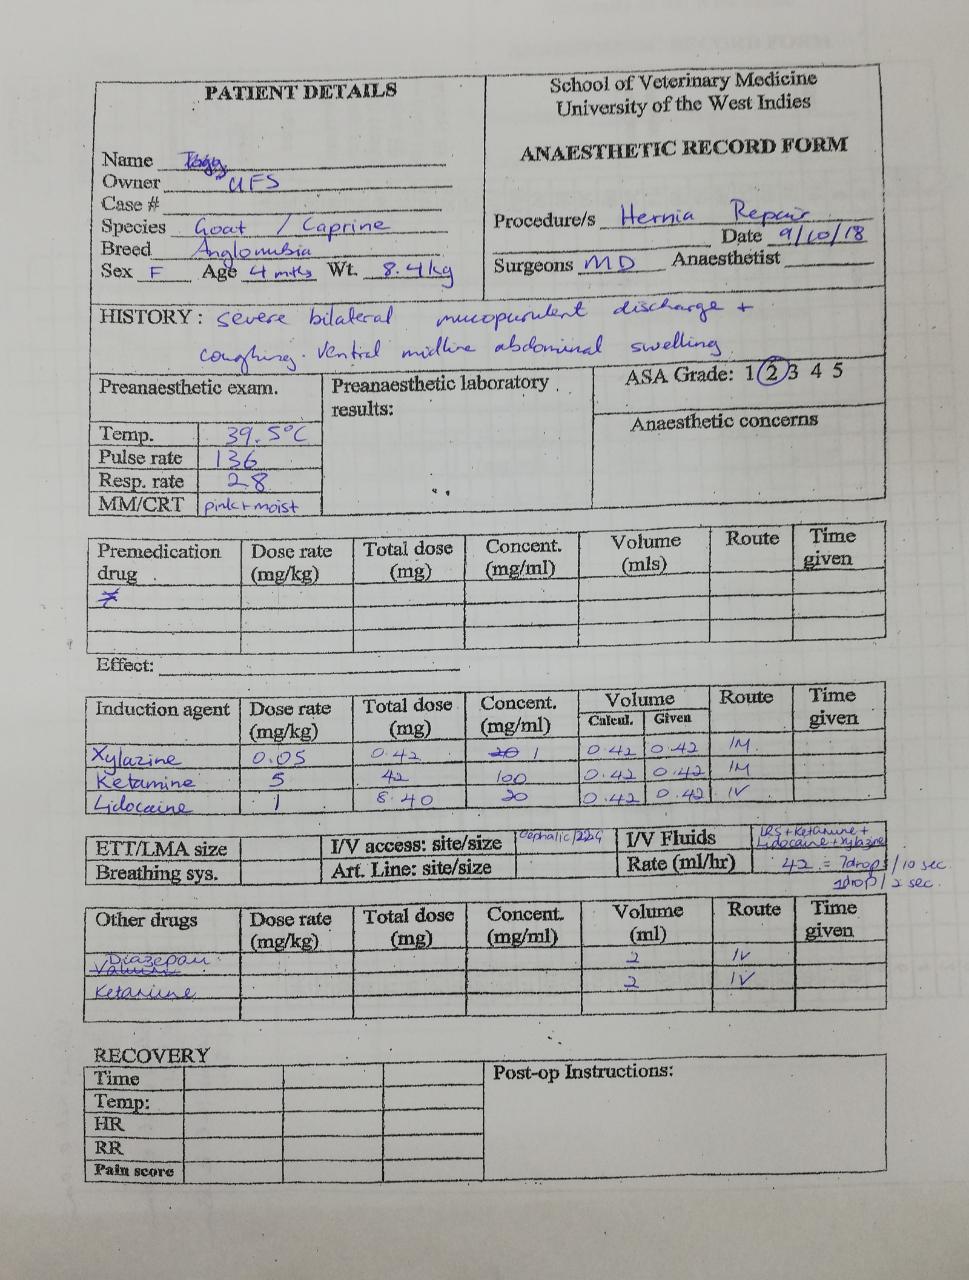 PATIENT DETAILS
Name
Owner UFS
Case #
Species Goat / Caprine
Breed Anglonubia
Sex F Age 4 mths Wt. 8.4kg
School of Veterinary Medicine
University of the West Indies
ANAESTHETIC RECORD FORM
Procedure/s Hernia Repair
Date 9/10/18
Surgeons MD Anaesthetist
HISTORY: severe bilateral mucopurulent discharge +
coughing. Ventral midline abdominal swelling
Preanaesthetic exam.
Temp. 39.5°C
Pulse rate 136
Resp. rate 28
MM/CRT pink+moist
Preanaesthetic laboratory
results:
ASA Grade: 1 2 3 4 5
Anaesthetic concerns
Premedication drug Dose rate (mg/kg) Total dose (mg) Concent. (mg/ml) Volume (mls) Route Time given
Effect:
Induction agent Dose rate (mg/kg) Total dose (mg) Concent. (mg/ml) Volume Calcul. Given Route Time given
Xylazine 0.05 0.42 20 1 0.42 0.42 IM
Ketamine 5 42 100 0.42 0.42 IM
Lidocaine 1 8.40 20 0.42 0.42 IV
ETT/LMA size I/V access: site/size Cephalic/22G I/V Fluids LRS+Ketamine+
Lidocaine+Xylazine
Breathing sys. Art. Line: site/size Rate (ml/hr) 42 = 7drops/10 sec.
1drop/2 sec.
Other drugs Dose rate (mg/kg) Total dose (mg) Concent. (mg/ml) Volume (ml) Route Time given
Diazepam 2 IV
Valium
Ketamine 2 IV
RECOVERY
Time
Temp:
HR
RR
Pain score
Post-op Instructions: